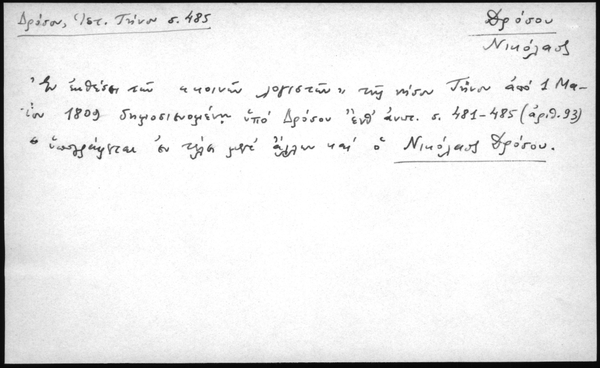 Δρόσου, Ἱστ. Τήνου σ. 485
Δρόσου
Νικόλαος
Ἐν ἐκθέσει τῶν «κοινῶν λογιστῶν» τῆς νήσου Τήνου ἀπό 1 Μα-
ΐου 1809 δημοσιευομένῃ ὑπό Δρόσου ἔνθ' ἀνωτ. σ. 481-485 (ἀριθ. 93)
ὑπογράφεται ἐν τέλει μετ' ἄλλων καί ὁ Νικόλαος Δρόσου.